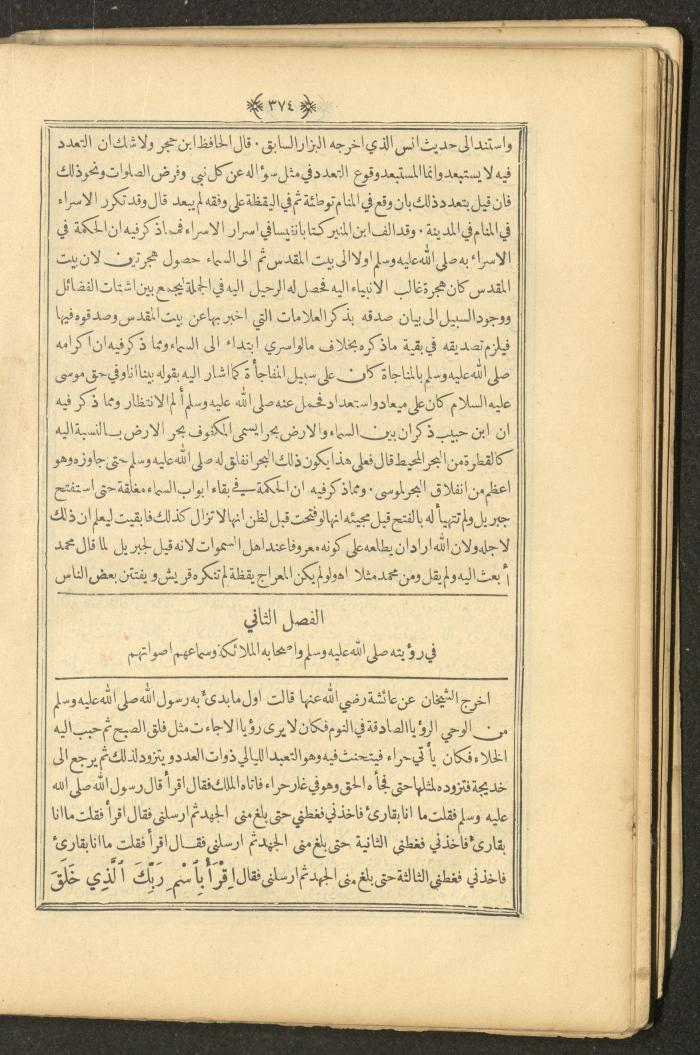 ٣٧٤
واستند الى حديث انس الذي اخرجه البزار السابق . قال الحافظ ابن حجر ولا شك ان التعدد
فيه لا يستبعد وانما المستبعد وقوع التعدد في مثل سؤاله عن كل نبي وفرض الصلوات ونحو ذلك
فان قيل بتعدد ذلك بان وقع في المنام توطئة ثم في اليقظة على وفقه لم يبعد قال وقد تكرر الاسراء
في المنام في المدينة . وقد الف ابن المنير كتابا نفيسا في اسرار الاسراء فمما ذكر فيه ان الحكمة في
الاسراء به صلى الله عليه وسلم اولا الى بيت المقدس ثم الى السماء حصول هجرتين لان بيت
المقدس كان هجرة غالب الانبياء اليه فحصل له الرحيل اليه في الجملة ليجمع بين اشتات الفضائل
ووجود السبيل الى بيان صدقه بذكر العلامات التي اخبر بها عن بيت المقدس وصدقوه فيها
فيلزم تصديقه في بقية ما ذكره بخلاف ما لو اسري ابتداء الى السماء ومما ذكر فيه ان اكرامه
صلى الله عليه وسلم بالمناجاة كان على سبيل المفاجأة كما اشار اليه بقوله بينا انا وفي حق موسى
عليه السلام كان على ميعاد واستعداد فحمل عنه صلى الله عليه وسلم ألم الانتظار ومما ذكر فيه
ان ابن حبيب ذكر ان بين السماء والارض بحرا يسمى المكفوف بحر الارض بالنسبة اليه
كالقطرة من البحر المحيط قال فعلى هذا يكون ذلك البحر انفلق له صلى الله عليه وسلم حتى جاوزه وهو
اعظم من انفلاق البحر لموسى . ومما ذكر فيه ان الحكمة في بقاء ابواب السماء مغلقة حتى استفتح
جبريل ولم تتهيأ له بالفتح قبل مجيئه انها لو فتحت قبل لظن انها لا تزال كذلك فابقيت ليعلم ان ذلك
لاجله ولان الله اراد ان يطلعه على كونه معروفا عند اهل السموات لانه قيل لجبريل لما قال محمد
أ بعث اليه ولم يقل ومن محمد مثلا اهو لو لم يكن المعراج يقظة لم تنكره قريش ويفتتن بعض الناس
الفصل الثاني
في رؤيته صلى الله عليه وسلم واصحابه الملائكة وسماعهم اصواتهم
اخرج الشيخان عن عائشة رضي الله عنها قالت اول ما بدئ به رسول الله صلى الله عليه وسلم
من الوحي الرؤيا الصادقة في النوم فكان لا يرى رؤيا الا جاءت مثل فلق الصبح ثم حبب اليه
الخلاء فكان يأتي حراء فيتحنث فيه وهو التعبد الليالي ذوات العدد ويتزود لذلك ثم يرجع الى
خديجة فتزوده لمثلها حتى فجأه الحق وهو في غار حراء فاتاه الملك فقال اقرأ قال رسول الله صلى الله
عليه وسلم فقلت ما انا بقارئ فاخذني فغطني حتى بلغ مني الجهد ثم ارسلني فقال اقرأ فقلت ما انا
بقارئ فاخذني فغطني الثانية حتى بلغ مني الجهد ثم ارسلني فقال اقرأ فقلت ما انا بقارئ
فاخذني فغطني الثالثة حتى بلغ مني الجهد ثم ارسلني فقال اِقْرَأْ بِٱسْمِ رَبِّكَ ٱلَّذِي خَلَقَ